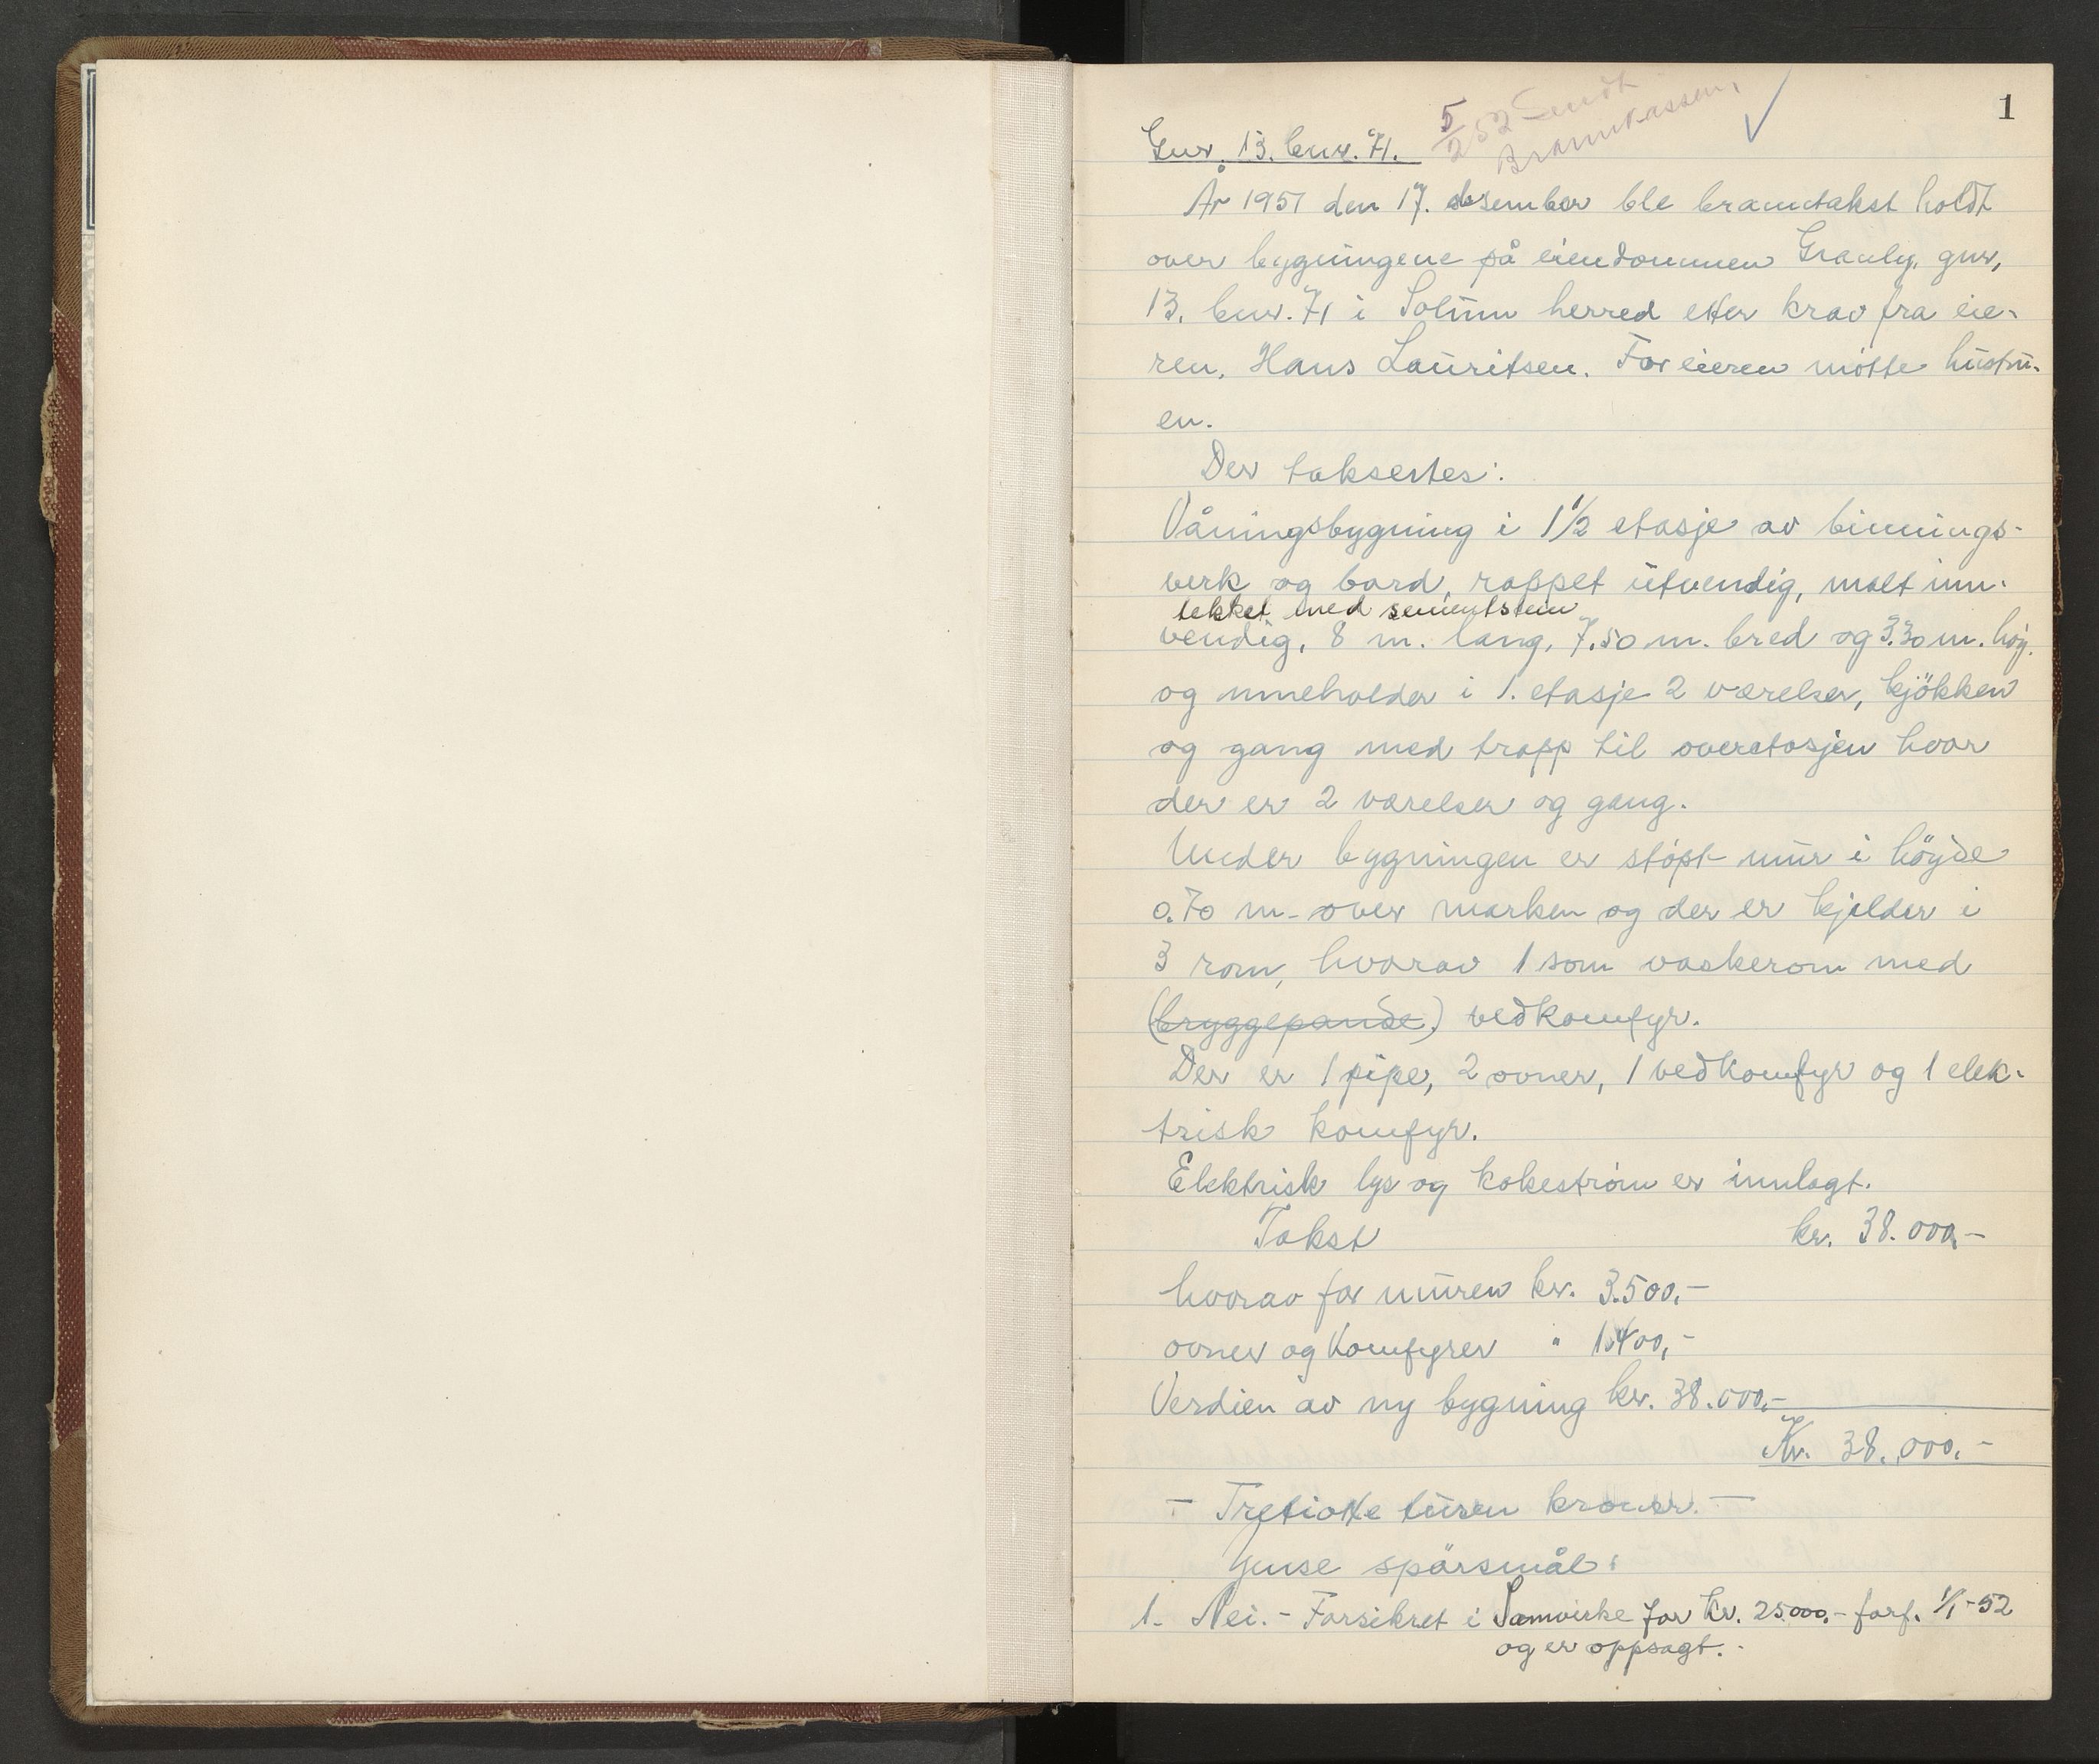 1
5/2 52 Sendt
Brannkassen.
Gnr. 13. bnr. 71.
År 1951 den 17. desember ble branntakst holdt
over bygningene på eiendommen Granly, gnr,
13. bnr. 71 i Solum herred etter krav fra eie-
ren, Hans Lauritsen. For eieren møtte hustru-
en.
Der taksertes:
Våningsbygning i 1½ etasje av binnings-
verk og bord, rappet utvendig, malt inn-
tekket med sementstein
vendig, 8 m. lang, 7.50 m. bred og 3.30 m. høy.
og inneholder i 1. etasje 2 værelser, kjökken
og gang med trapp til overetasjen hvor
der er 2 værelser og gang.
Under bygningen er støpt mur i höyde
0.70 m. over marken og der er kjelder i
3 rom, hvorav 1 som vaskerom med
(bryggepande) vedkomfyr.
Der er 1 pipe, 2 ovner, 1 vedkomfyr og 1 elek-
trisk komfyr.
Elektrisk lys og kokestrøm er innlagt.
Takst kr. 38.000,-
hvorav for muren kr. 3.500,-
ovner og komfyrer " 1.400,-
Verdien av ny bygning kr. 38.000,-
Kr. 38.000.-
- Trettiotte tusen kroner. -
Gjense spørsmål:
1. Nei. - Forsikret i Samvirke for kr. 25000.- forf. 1/1-52
og er oppsagt. -